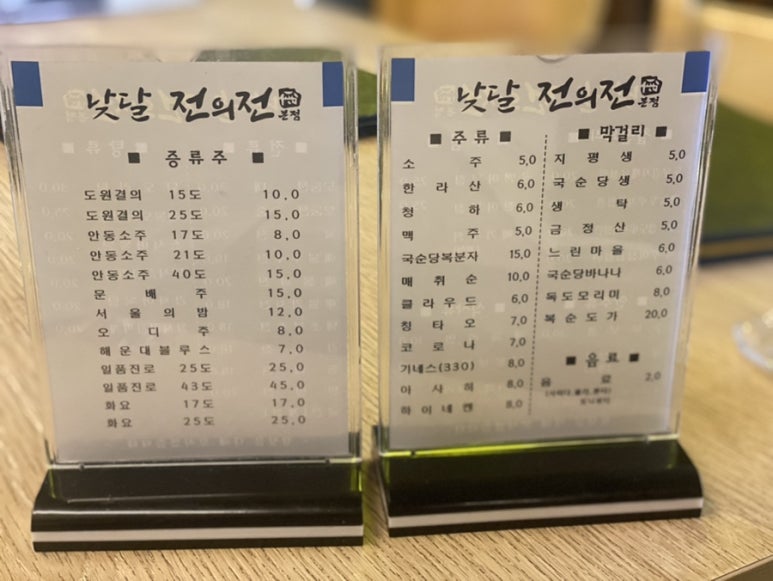 낮달 전의전 본점
■ 증류주 ■
도원결의 15도 10,0
도원결의 25도 15,0
안동소주 17도 8,0
안동소주 21도 10,0
안동소주 40도 15,0
문배주 15,0
서울의밤 12,0
오디주 8,0
해운대블루스 7,0
일품진로 25도 25,0
일품진로 43도 45,0
화요 17도 17,0
화요 25도 25,0
낮달 전의전 본점
■ 주류 ■
소주 5,0
한라산 6,0
청하 6,0
맥주 5,0
국순당복분자 15,0
매취순 10,0
클라우드 6,0
칭타오 7,0
코로나 7,0
기네스(330) 8,0
아사히 8,0
하이네켄 8,0
■ 막걸리 ■
지평생 5,0
국순당생 5,0
생탁 5,0
금정산 5,0
느린마을 6,0
국순당바나나 6,0
독도모리미 8,0
복순도가 20,0
■ 음료 ■
음료 2,0